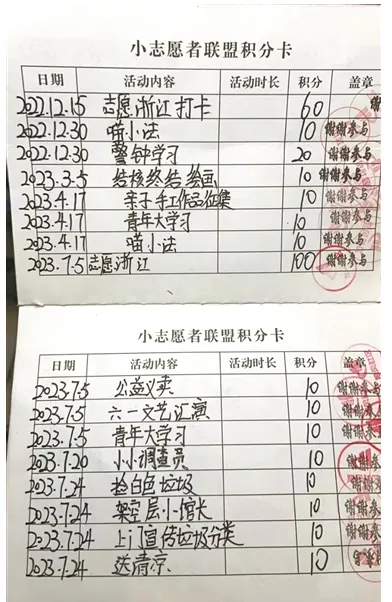 小志愿者联盟积分卡
日期 活动内容 活动时长 积分 盖章
2022.12.15 志愿浙江打卡 60 谢
2022.12.30 喵小法 10 谢谢参与
2022.12.30 警钟学习 20 谢谢参与
2023.3.5 结核终结绘画 10 谢谢参与
2023.4.17 亲子手工作品征集 10 谢谢参与
2023.4.17 青年大学习 10 谢谢参与
2023.4.17 喵小法 10 谢谢参与
2023.7.5 志愿浙江 100 谢谢参与
小志愿者联盟积分卡
日期 活动内容 活动时长 积分 盖章
2023.7.5 公益义卖 10 谢谢参
2023.7.5 六一文艺汇演 10 谢谢参
2023.7.5 青年大学习 10 谢谢参
2023.7.20 小小调查员 10 谢谢参
2023.7.24 捡白色垃圾 10 谢谢参
2023.7.24 架空层小馆长 10 谢谢参
2023.7.24 上门宣传垃圾分类 10 谢谢参
2023.7.24 送清凉 10